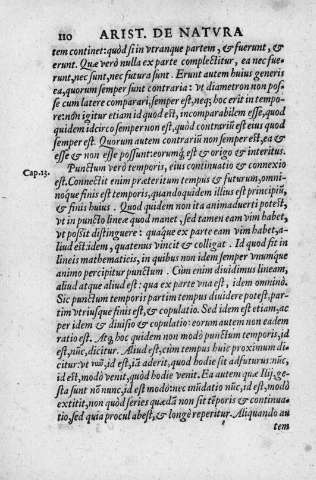 110 ARIST. DE NATVRA
tem continet: quòd si in vtranque partem, & fuerunt, &
erunt. Quæ verò nulla ex parte complectitur, ea nec fue-
runt, nec sunt, nec futura sunt. Erunt autem huius generis
ea, quorum semper sunt contraria: vt diametron non pos-
se cum latere comparari, semper est, neq; hoc erit in tempo-
re: nõn igitur etiam id quod est, incomparabilem esse, quod
quidem idcirco semper non est, quòd contrariũ est eius quod
semper est. Quorum autem contrariũ non semper est, ea &
esse & non esse possunt: eorumq́ est & origo & interitus.
Cap.13. Punctum verò temporis, eius continuatio & connexio
est. Connectit enim præteritum tempus & futurum, omni-
nóque finis est temporis, quandoquidem illius est principiũ,
& finis huius. Quod quidem non ita animaduerti potest,
vt in puncto lineæ quod manet, sed tamen eam vim habet,
vt possit distinguere: quaq́ue ex parte eam vim habet, a-
liud est: idem, quatenus vincit & colligat. Id quod fit in
lineis mathematicis, in quibus non idem semper vnumque
animo percipitur punctum. Cùm enim diuidimus lineam,
aliud atque aliud est: qua ex parte vna est, idem omninò.
Sic punctum temporis partim tempus diuidere potest, par-
tim vtriusque finis est, & copulatio. Sed idem est etiam, ac
per idem & diuisio & copulatio: eorum autem non eadem
ratio est. Atq́ hoc quidem non modò punctum temporis, id
est, nũc, dicitur. Aliud est, cùm tempus huic proximum di-
citur: vt uẽt, id est, iã aderit, quod hodie sit adfuturus: nũc,
id est, modò venit, quòd hodie venit. Ea autem quæ Ilij, ge-
sta sunt nõ nunc, id est modo: nec inũdatio nũc, id est, modò
extitit, non quòd series quædã non sit tẽporis & continua-
tio, sed quia procul abest, & longè reperitur. Aliquando au
tem